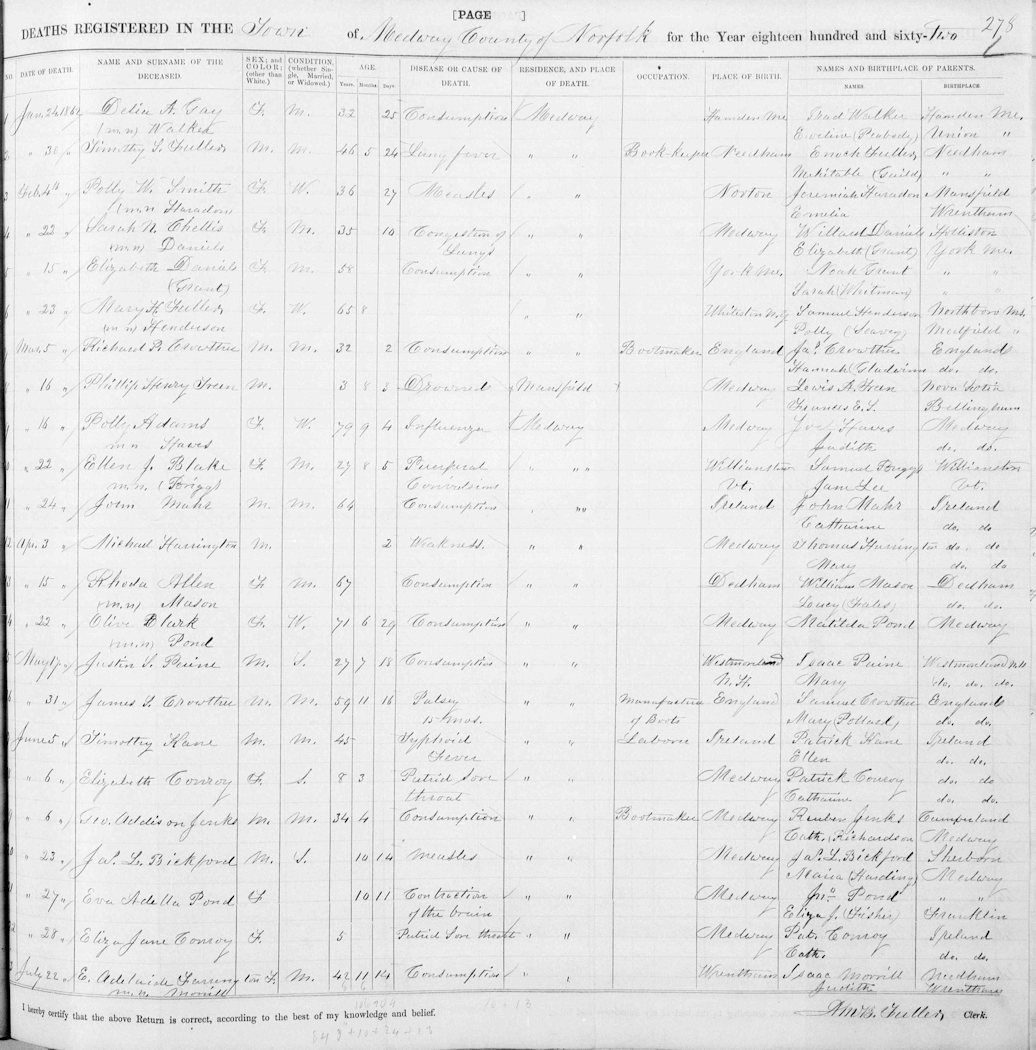 [PAGE ] 278
DEATHS REGISTERED IN THE Town of Medway County of Norfolk for the Year eighteen hundred and sixty-Two
NO. DATE OF DEATH. NAME AND SURNAME OF THE DECEASED. SEX; and COLOR; (other than White.) CONDITION, (whether Single, Married, or Widowed.) AGE. Years. Months Days. DISEASE OR CAUSE OF DEATH. RESIDENCE, AND PLACE OF DEATH. OCCUPATION. PLACE OF BIRTH. NAMES AND BIRTHPLACE OF PARENTS. NAMES. BIRTHPLACE.
1 Jan. 24, 1862 Delia A. Gay F. M. 32 25 Consumption Medway Hamden Me Walker Hamden Me.
(m.n) Walker Eveline (Peabody) Union "
2 " 30 " Timothy S. Fuller M. M. 46 5 24 Lung fever " " Book-keeper Needham Enoch Fuller Needham
Mehitable (Guild) " "
3 Feb. 4th " Polly W. Smith F. W. 36 27 Measles " " Norton Jeremiah Haradon Mansfield
(m.n Haradon) Emelia Wrentham
4 " 22 " Sarah N. Chellis F. M. 35 10 Congestion of " " Medway Willard Daniels Holliston
(m.n) Daniels Lungs Elizabeth (Grant) York Me.
5 " 15 " Elizabeth Daniels F. M. 58 Consumption " " York Me. Noah Grant " "
(Grant) Sarah (Whitman) " "
6 " 23 " Mary H. Fuller F. W. 65 8 " " Samuel Henderson Northboro Ms.
(m n) Henderson Polly (Seavey) Medfield "
7 Mar. 5 " Richard P. Crowther M. M. 32 2 Consumption " " Bootmaker England Jas. Crowther England
Hannah (Gladwin) do. do.
8 " 16 " Phillip Henry Green M. 3 8 3 Drowned Mansfield Medway Lewis A. Green Nova Scotia
Frances E. S. Bellingham
9 " 16 " Polly Adams F. W. 79 9 4 Influenza Medway Medway Joel Hawes Medway
m.n Hawes Judith do. do.
10 " 22 " Ellen J. Blake F. M. 27 8 5 Puerperal " " Williamstown Samuel Briggs Williamston
m.n. (Briggs) Convulsions Vt. Jane Lee Vt.
11 " 24 " John Mahr M. M. 64 Consumption " " Ireland John Mahr Ireland
Catharine do. do
12 Apr. 3 " Michael Harrington M. 2 Weakness. " " Medway Thomas Harrington do. do
Mary do. do
13 " 15 " Rhoda Allen F. M. 67 Consumption " " Dedham William Mason Dedham
(m.n) Mason Lucy (Fales) do. do.
14 " 22 " Olive Clark F. W. 71 6 29 Consumption " " Medway Matilda Pond Medway
(m.n) Pond
15 May 17 " Justin S. Paine M. S. 27 7 18 Consumption " " Westmoreland Isaac Paine Westmoreland N.H.
N.H. Mary do. do. do.
16 " 31 " James S. Crowther M. M. 59 11 16 Palsy " " Manufacturer England Samuel Crowther England
15 mos. of Boots Mary (Pollard) do. do.
17 June 5 " Timothy Kane M. M. 45 Typhoid " " Laborer Ireland Patrick Kane Ireland
Fever Ellen do. do.
18 " 6 " Elizabeth Conroy F. S. 8 3 Putrid Sore " " Medway Patrick Conroy do. do
throat Catharine do. do.
19 " 6 " Geo. Addison Jenks M. M. 34 4 Consumption " " Bootmaker Medway Reuben Jenks Cumberland
Cath. (Richardson Medway
20 " 23 " Jas. L. Bickford M. S. 10 14 Measles " " Medway Jas. L. Bickford Sherborn
Maria (Harding) Medway
21 " 27 " Eva Adella Pond F 10 11 Contraction " " Medway Jno. Pond " "
of the brain Eliza J. (Fisher) Franklin
22 " 28 " Eliza Jane Conroy F. 5 Putrid Sore throat " " Medway Pat. Conroy Ireland
Cath. do. do.
23 July 22 " E. Adelaide Farrington F. M. 42 11 14 Consumption " " Wrentham Isaac Morrill Needham
m.n. Morrill Judith Wrentham
I hereby certify that the above Return is correct, according to the best of my knowledge and belief. Clerk.
10 + 13